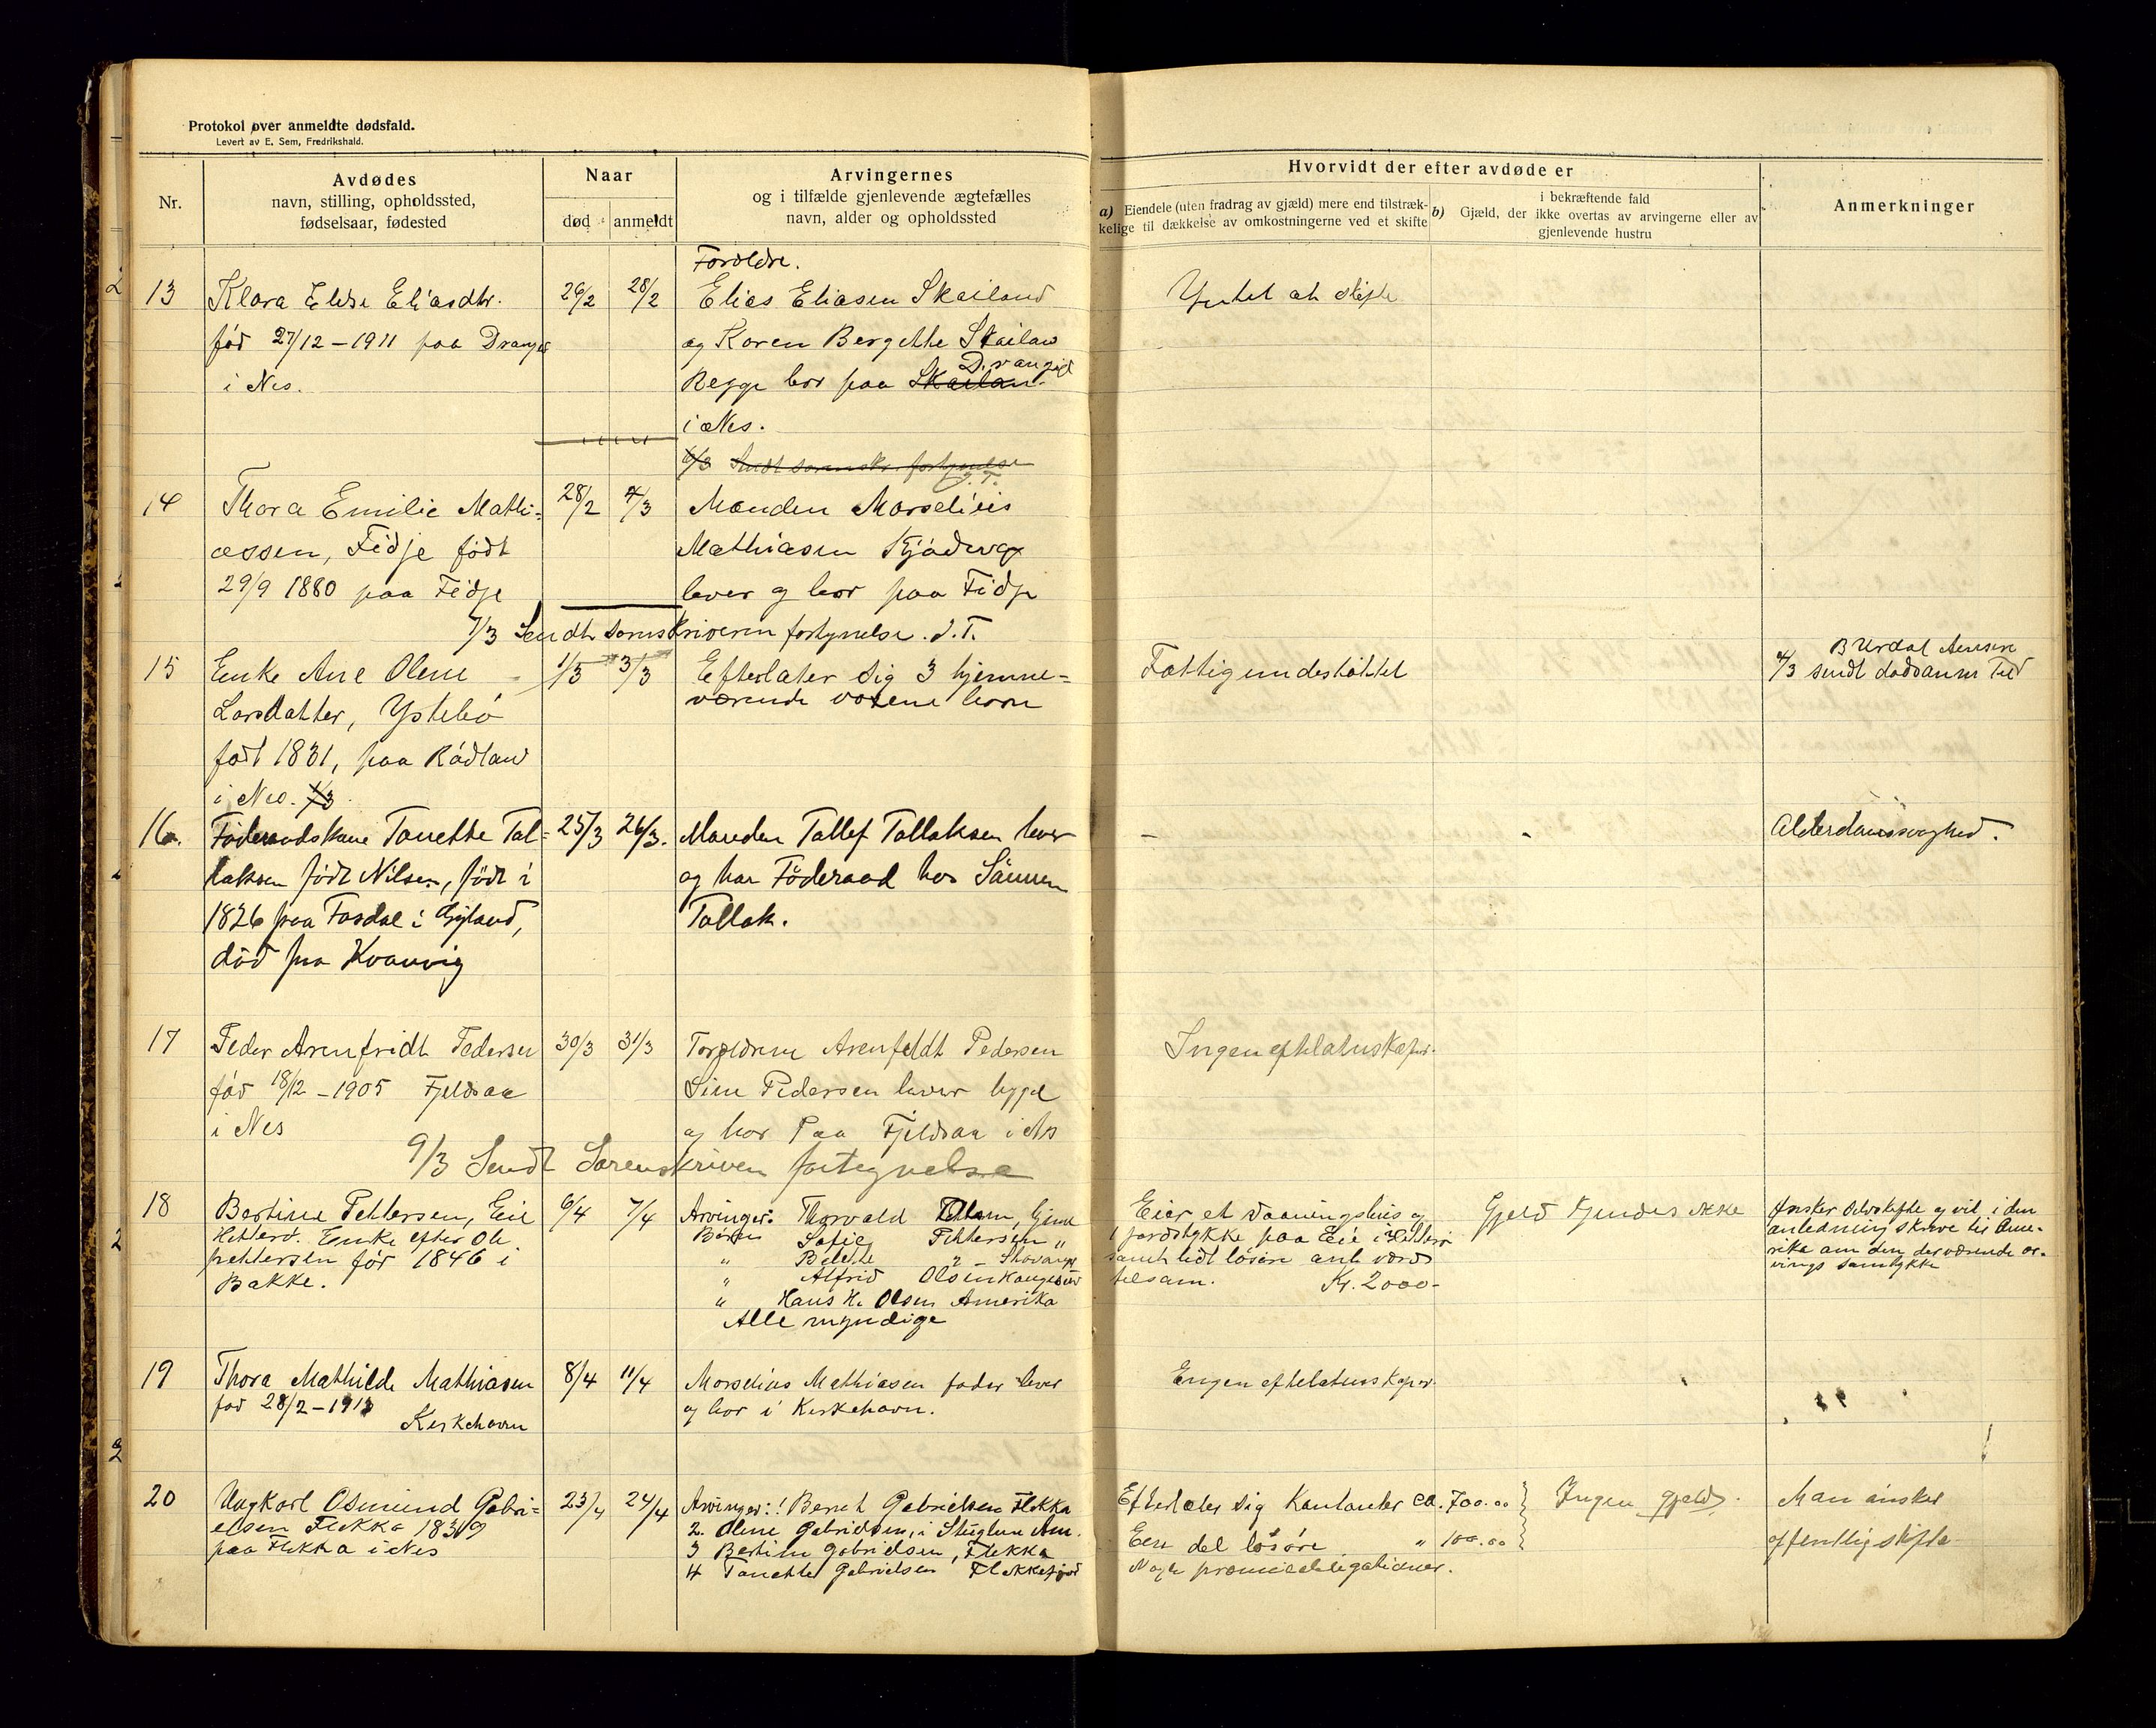 Protokol over anmeldte dødsfald.
Levert av E. Sem, Fredrikshald.
Nr.
Avdødes
navn, stilling, opholdssted,
fødselsaar, fødested
Naar
død
anmeldt
Arvingernes
og i tilfælde gjenlevende ægtefælles
navn, alder og opholdssted
Hvorvidt der efter avdøde er
a) Eiendele (uten fradrag av gjæld) mere end tilstræk-
kelige til dækkelse av omkostningerne ved et skifte
b) i bekræftende fald
Gjæld, der ikke overtas av arvingerne eller av
gjenlevende hustru
Anmerkninger
13
Klara Elise Eliasdtr.
fød 27/12 – 1911 paa
i Nes.
26/2
28/2
Foreldre.
Elias Eliasen Skailand
og Karen Bergette
Begge bor paa Skailan
Drangeid
i Nes.
Intet at skifte
6/3 Sendt sorenskr. fortegnelse
J.T.
14
Thora Emilie Mathi=
assen, Fedje født
29/9 1880 paa Fedje
28/2
4/3
Manden Marselius
Mathiasen
lever og bor paa Fidje
7/3 Sendt sorenskriveren fortegnelse. J.T.
15
Enke Ane Olene
Larsdatter, Ystebø
født 1831, paa Rødland
i Nes.
1/3
3/3
Efterlater sig 3 hjemme=
værende voxene born
Fattigunderstøttet
4/3 sendt dødsanm
16.
Føderaadskone Tanette Tal=
laksen født Nilsen, født i
1826 paa Fosdal i Gyland,
død paa Kvanvig
25/3
26/3.
Manden Tallef Tallaksen lever
og har Föderaad hos Sönnen
Tallak.
–
-
Alderdomssvaghed.
17
Peder Arenfridt Pedersen
fød 18/12 – 1905 Fjeldsaa
i Nes
30/3
31/3
Foreldrene Arenfeldt Pedersen
Sine Pedersen lever bygge
og bor Paa Fjeldsaa i Nes
Ingen efterlatenskaper.
9/3 Sendt Sorenskriven fortegnelse
18
Bertine Pettersen, Eie
Hitterø. Enke efter Ole
pettersen fød 1846 i
Bakke.
6/4
7/4
Arvinger: Thorvald
Børn Sofie Pettersen "
" Bolette " – Stavanger
" Alfrid Olsen
" Hans H. Olsen Amerika
Alle myndige
Eier et Vaaningshus og
1 jordstykke paa Eie i Hitterø
samt lidt løsøre ant. værd
tilsam. Kr. 2000-
Gjeld Kjendes ikke
Ønsker selvskifte og vil i den
anledning skrive til Ame-
rika om den derværende ar-
vings samtykke
19
Thora Mathilde Mathiasen
fød 28/2 – 1913
Kirkehavn
8/4
11/4
Marselius Mathiasen fader lever
og bor i Kirkehavn.
Engen efterlatenskaper.
20
Ungkarl Osmund Gabri=
elsen Flekka 1839
paa Flekka i Nes
23/4
24/4
Arvinger: 1 Berret Gabrielsen Flekka
2. Oline Gabrielsen, i
3 Bertine Gabrielsen, Flekka
4 Tanette Gabrielsen Flekkefjord
Efterlater sig Kontanter ca. 700.00
Een del løsøre " 100.00
Nogle premieobligationer.
Ingen gjeld.
Man ønsker
offentlig skifte